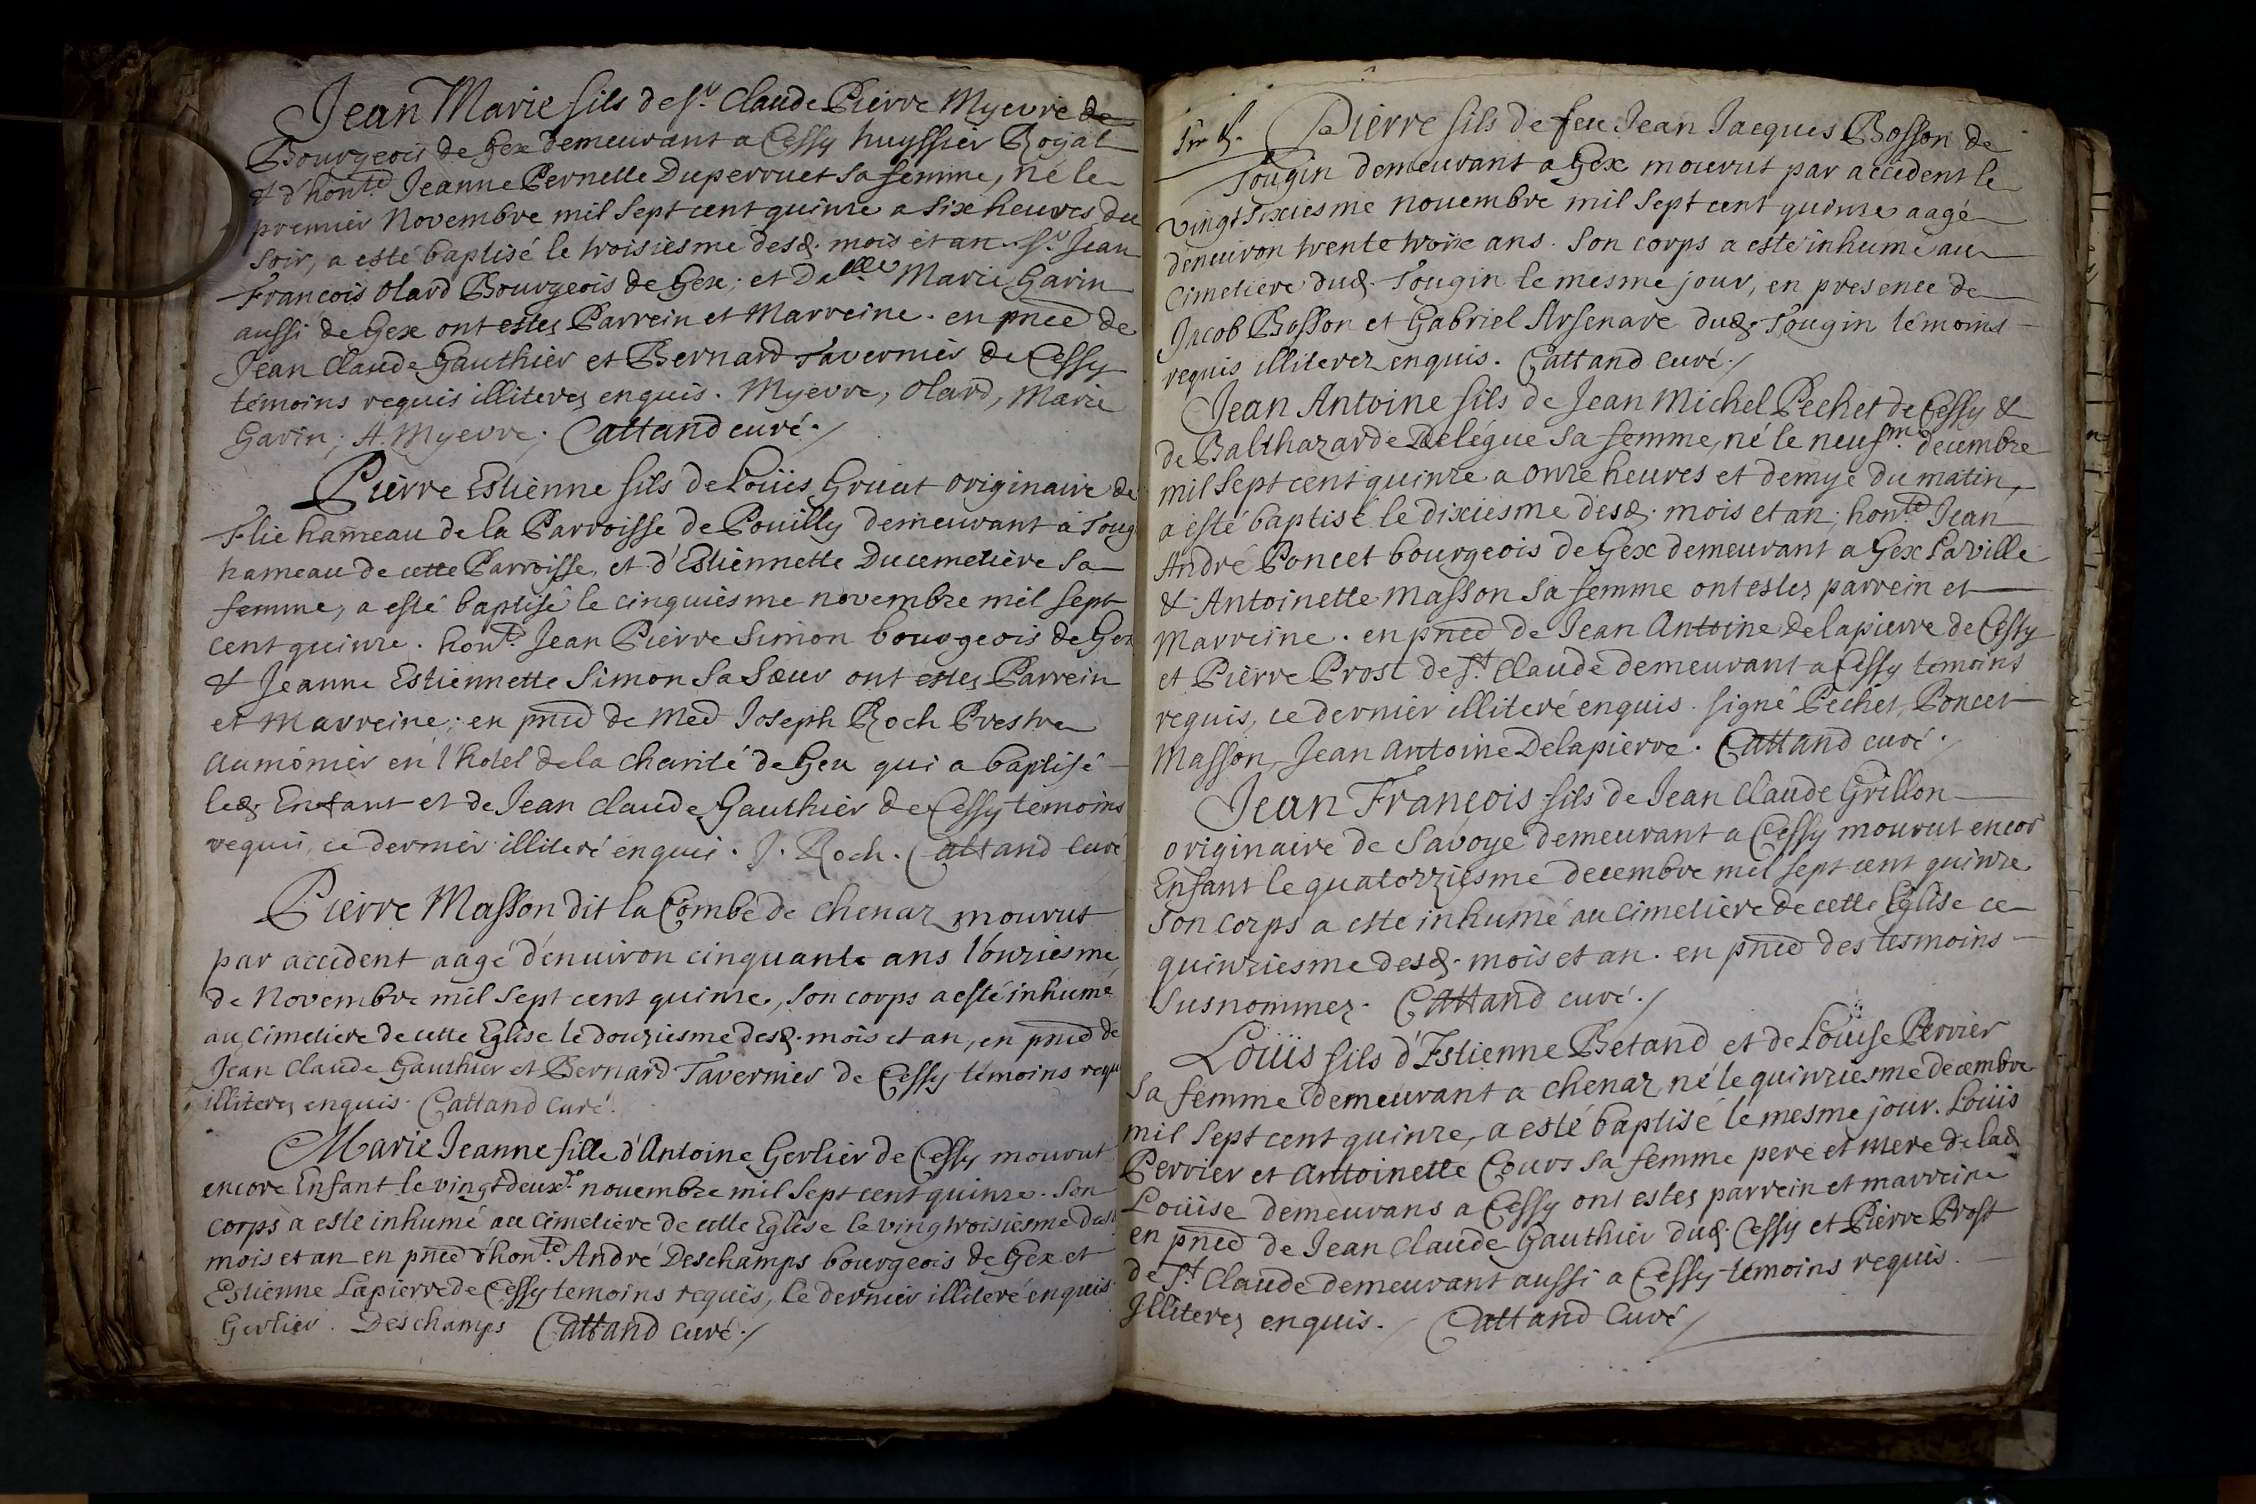 Jean Marie fils de sr. Claude Pierre Myevre de
Bourgeois de Gex demeurant a Cessy huyssier Royal
& d'honte. Jeanne Pernette Duperruet sa femme, né le
premier Novembre mil sept cent quinze a six heures du
soir, a esté baptisé le troisiesme desd. mois et an. sr. Jean
François Olard Bourgeois de Gex; et Dalle Marie Garin
aussi de Gex ont estez Parrein et Marreine. en pnce de
Jean Claude Gauthier et Bernard Tavernier de Cessy
témoins requis illiterez enquis. Myevre, Olard, Marie
Garin; A. Myevre; Cattand curé./
Pierre Estienne fils de Loüis Gruat originaire de
Flie hameau de la Parroisse de Pouilly demeurant a Toug
hameau de cette Parroisse, et d'Estiennette Ducemetiere sa
femme, a esté baptisé le cinquiesme novembre mil sept
cent quinze. honte. Jean Pierre Simon bourgeois de Gex
& Jeanne Estiennette Simon sa sœur ont estez Parrein
et Marreine; en pnce de Med Joseph Roch Prestre
aumônier en l'hotel de la charité de Gex qui a baptisé
led. Enfant et de Jean Claude Gauthier de Cessy temoins
requis, ce dernier illiteré enquis. J. Roch. Cattand Curé
Pierre Masson dit la Combe de chenaz mourut
par accident aagé d'enuiron cinquante ans l'onziesme
de Novembre mil sept cent quinze, son corps a esté inhumé
au Cimetiere de cette Eglise le douziesme desd. mois et an, en pnce de
Jean Claude Gauthier et Bernard Tavernier de Cessy témoins requ
illiterez enquis. Cattand Curé.
Marie Jeanne fille d'Antoine Gerlier de Cessy mourut
encore Enfant le vingtdeuxe. novembre mil sept cent quinze. Son
corps a esté inhumé au cimetiere de cette Eglise le vingtroisiesme dud
mois et an en pnce d'honte. André Deschamps bourgeois de Gex et
Estienne Lapierre de Cessy temoins requis, le dernier illiteré enquis
Gerlier. Deschamps Cattand curé./
Pierre fils de feu Jean Jacques Bosson de
Tougin demeurant a Gex mourut par accident le
vingt sixiesme novembre mil sept cent quinze aagé
d'enuiron trente troix ans. Son corps a esté inhumé au
Cimetiere dud. Tougin le mesme jour, en presence de
Jacob Bosson et Gabriel Arsenare dud. Tougin témoins
requis illiterez enquis. Cattand curé./
Jean Antoine fils de Jean Michel Pechet de Cessy &
de Balthazarde Delégue sa femme, né le neufme. decembre
mil sept cent quinze a onze heures et demye du matin,
a esté baptisé le dixiesme desd. mois et an; honte. Jean
André Poncet bourgeois de Gex demeurant a Gex la ville
& Antoinette Masson sa femme ont estez parrein et
Marreine. en pnce de Jean Antoine Delapierre de Cessy
et Pierre Prost de St. Claude demeurant a Cessy temoins
requis, ce dernier illiteré enquis. signé Pechet, Poncet
Masson, Jean Antoine Delapierre. Cattand curé./
Jean François fils de Jean Claude Grillon
originaire de Savoye demeurant a Cessy mourut encor
Enfant le quatorziesme decembre mil sept cent quinze
Son corps a esté inhumé au cimetiere de cette Eglise ce
quinziesme desd. mois et an. en pnce des tesmoins
susnommez. Cattand curé./
Loüis fils d'Estienne Betand et de Loüise Pervier
sa femme demeurant a chenaz né le quinziesme decembre
mil sept cent quinze, a esté baptisé le mesme jour. Loüis
Pervier et Antoinette Cours sa femme pere et mere de lad
Loüise demeurans a Cessy ont estez parrein et marreine
en pnce de Jean Claude Gauthier dud. Cessy et Pierre Prost
de St Claude demeurant aussi a Cessy temoins requis
Illiterez enquis./ Cattand Curé/